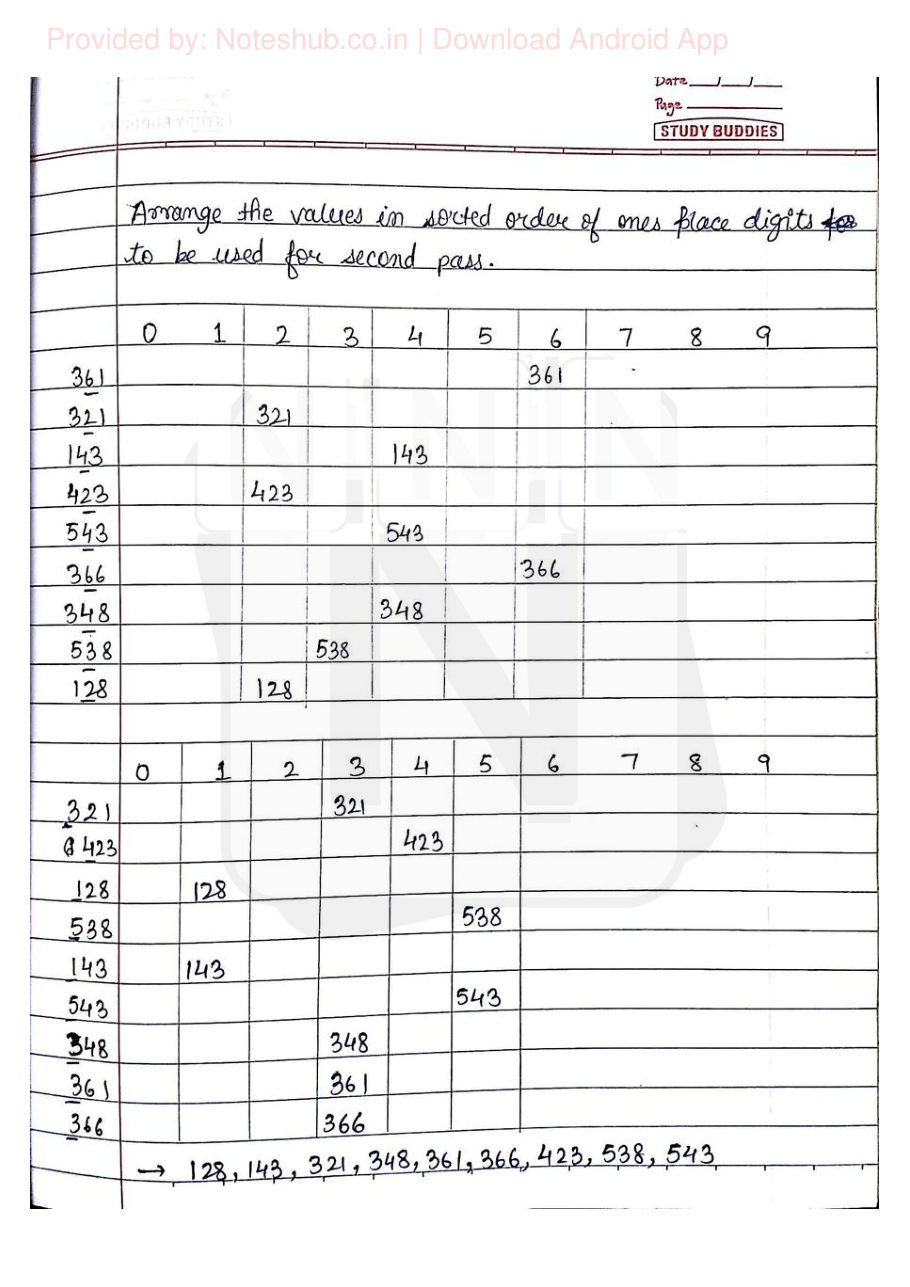 Provided by: Noteshub.co.in | Download Android App
Date
Page
STUDY BUDDIES
Arrange the values in sorted order of ones place digits
to be used for second pass.
0 1 2 3 4 5 6 7 8 9
361 361
321 321
143 143
423 423
543 543
366 366
348 348
538 538
128 128
0 1 2 3 4 5 6 7 8 9
321 321
423 423
128 128
538 538
143 143
543 543
348 348
361 361
366 366
→ 128, 143, 321, 348, 361, 366, 423, 538, 543